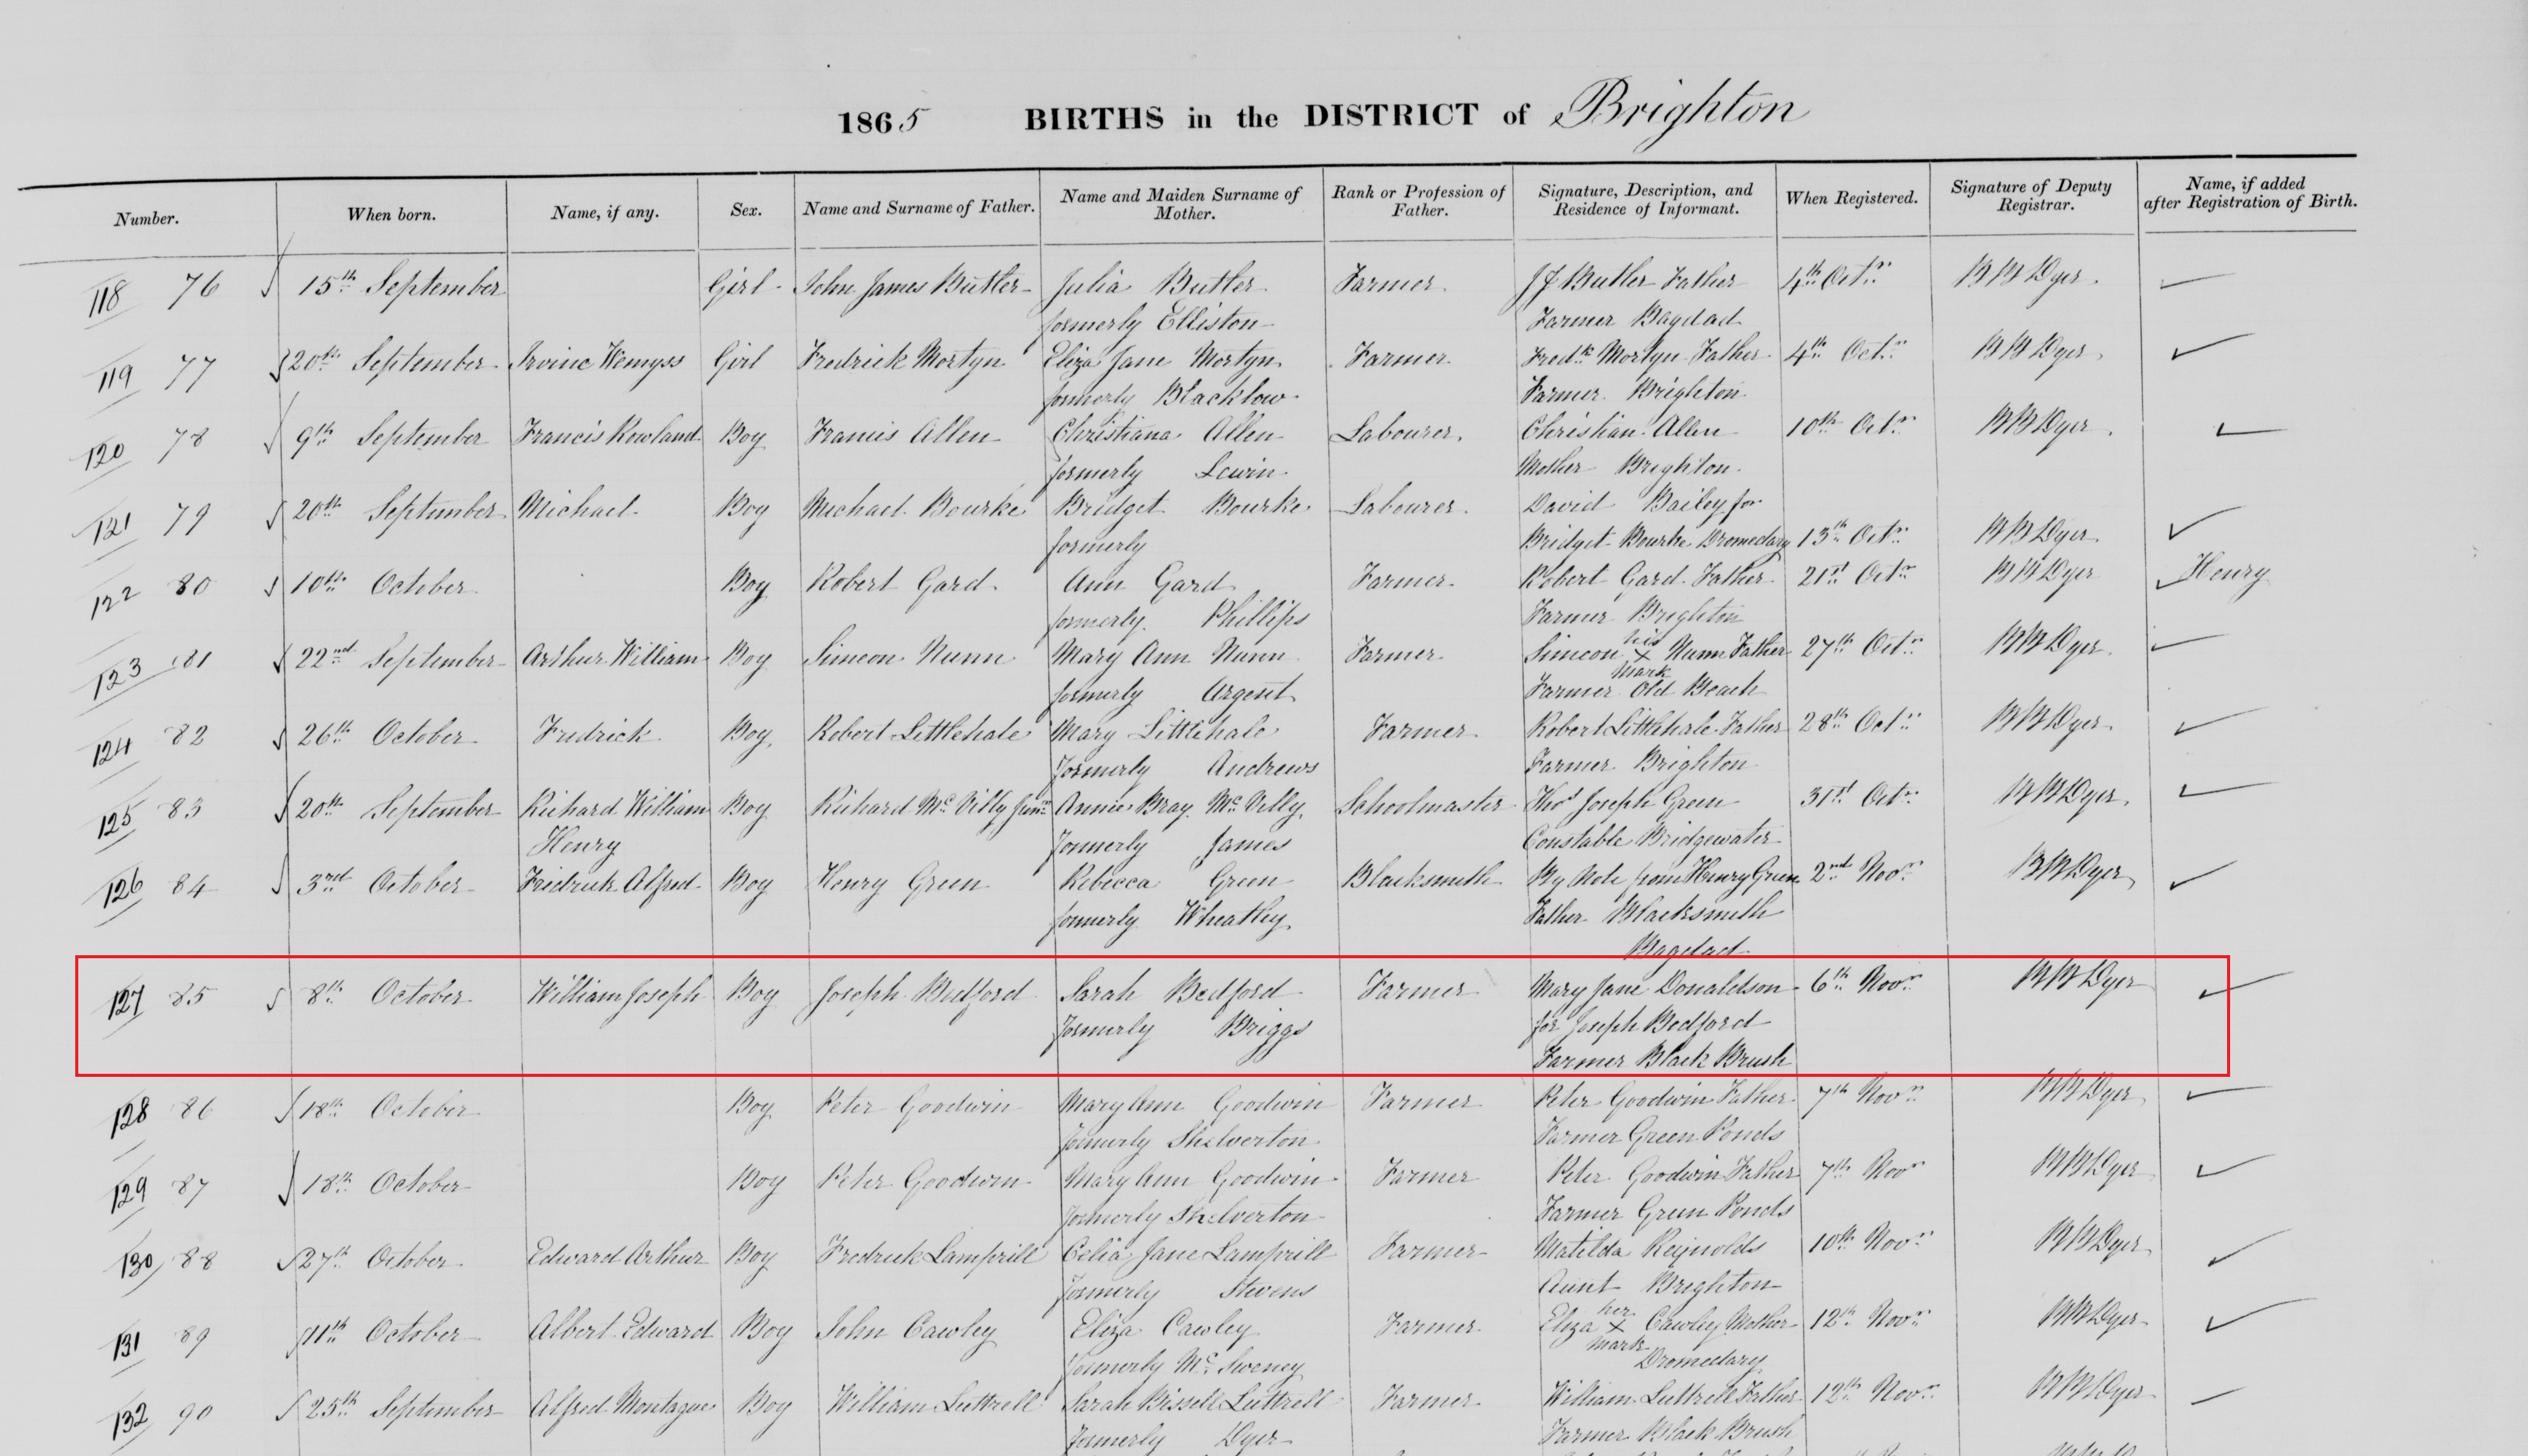 1865 BIRTHS in the DISTRICT of Brighton
Number. When born. Name, if any. Sex. Name and Surname of Father. Name and Maiden Surname of Mother. Rank or Profession of Father. Signature, Description, and Residence of Informant. When Registered. Signature of Deputy Registrar. Name, if added after Registration of Birth.
118 76 15th September Girl John James Butler Julia Butler Farmer J J Butler Father 4th Octr B B Dyer
formerly Elliston Farmer Bagdad
119 77 20th September Irvine Wemyss Girl Fredrick Mortyn Eliza Jane Mortyn Farmer Fredk Mortyn Father 4th Octr B B Dyer
formerly Blacklow Farmer Brighton
120 78 9th September Francis Rowland Boy Francis Allen Christiana Allen Labourer Christian Allen 10th Octr B B Dyer
formerly Lewin Mother Brighton
121 79 20th September Michael Boy Michael Bourke Bridget Bourke Labourer David Bailey for
formerly Bridget Bourke Dromedary 13th Octr B B Dyer
122 80 10th October Boy Robert Gard Ann Gard Farmer Robert Gard Father 21st Octr B B Dyer Henry
formerly Phillips Farmer Brighton
123 81 22nd September Arthur William Boy Simeon Nunn Mary Ann Nunn Farmer Simeon his X mark Nunn Father 27th Octr B B Dyer
formerly Argent Farmer Old Beach
124 82 26th October Fredrick Boy Robert Littlehale Mary Littlehale Farmer Robert Littlehale Father 28th Octr B B Dyer
formerly Andrews Farmer Brighton
125 83 20th September Richard William Boy Richard Mc Villy Junr Annie Bray Mc Villy Schoolmaster Thos Joseph Green 31st Octr B B Dyer
Henry formerly James Constable Bridgewater
126 84 3rd October Fredrick Alfred Boy Henry Green Rebecca Green Blacksmith By Note from Henry Green 2nd Novr B B Dyer
formerly Wheatley Father Blacksmith
Bagdad
127 85 8th October William Joseph Boy Joseph Bedford Sarah Bedford Farmer Mary Jane Donaldson 6th Novr B B Dyer
formerly Briggs for Joseph Bedford
Farmer Black Brush
128 86 18th October Boy Peter Goodwin Mary Ann Goodwin Farmer Peter Goodwin Father 7th Novr B B Dyer
formerly Shelverton Farmer Green Ponds
129 87 18th October Boy Peter Goodwin Mary Ann Goodwin Farmer Peter Goodwin Father 7th Novr B B Dyer
formerly Shelverton Farmer Green Ponds
130 88 27th October Edward Arthur Boy Fredrick Lamprill Celia Jane Lamprill Farmer Matilda Reynolds 10th Novr B B Dyer
formerly Stevens Aunt Brighton
131 89 11th October Albert Edward Boy John Cawley Eliza Cawley Farmer Eliza her X mark Cawley Mother 12th Novr B B Dyer
formerly Mc Sweney Dromedary
132 90 25th September Alfred Montague Boy William Luttrell Sarah Bissell Luttrell Farmer William Luttrell Father 12th Novr B B Dyer
formerly Dyer Farmer Black Brush